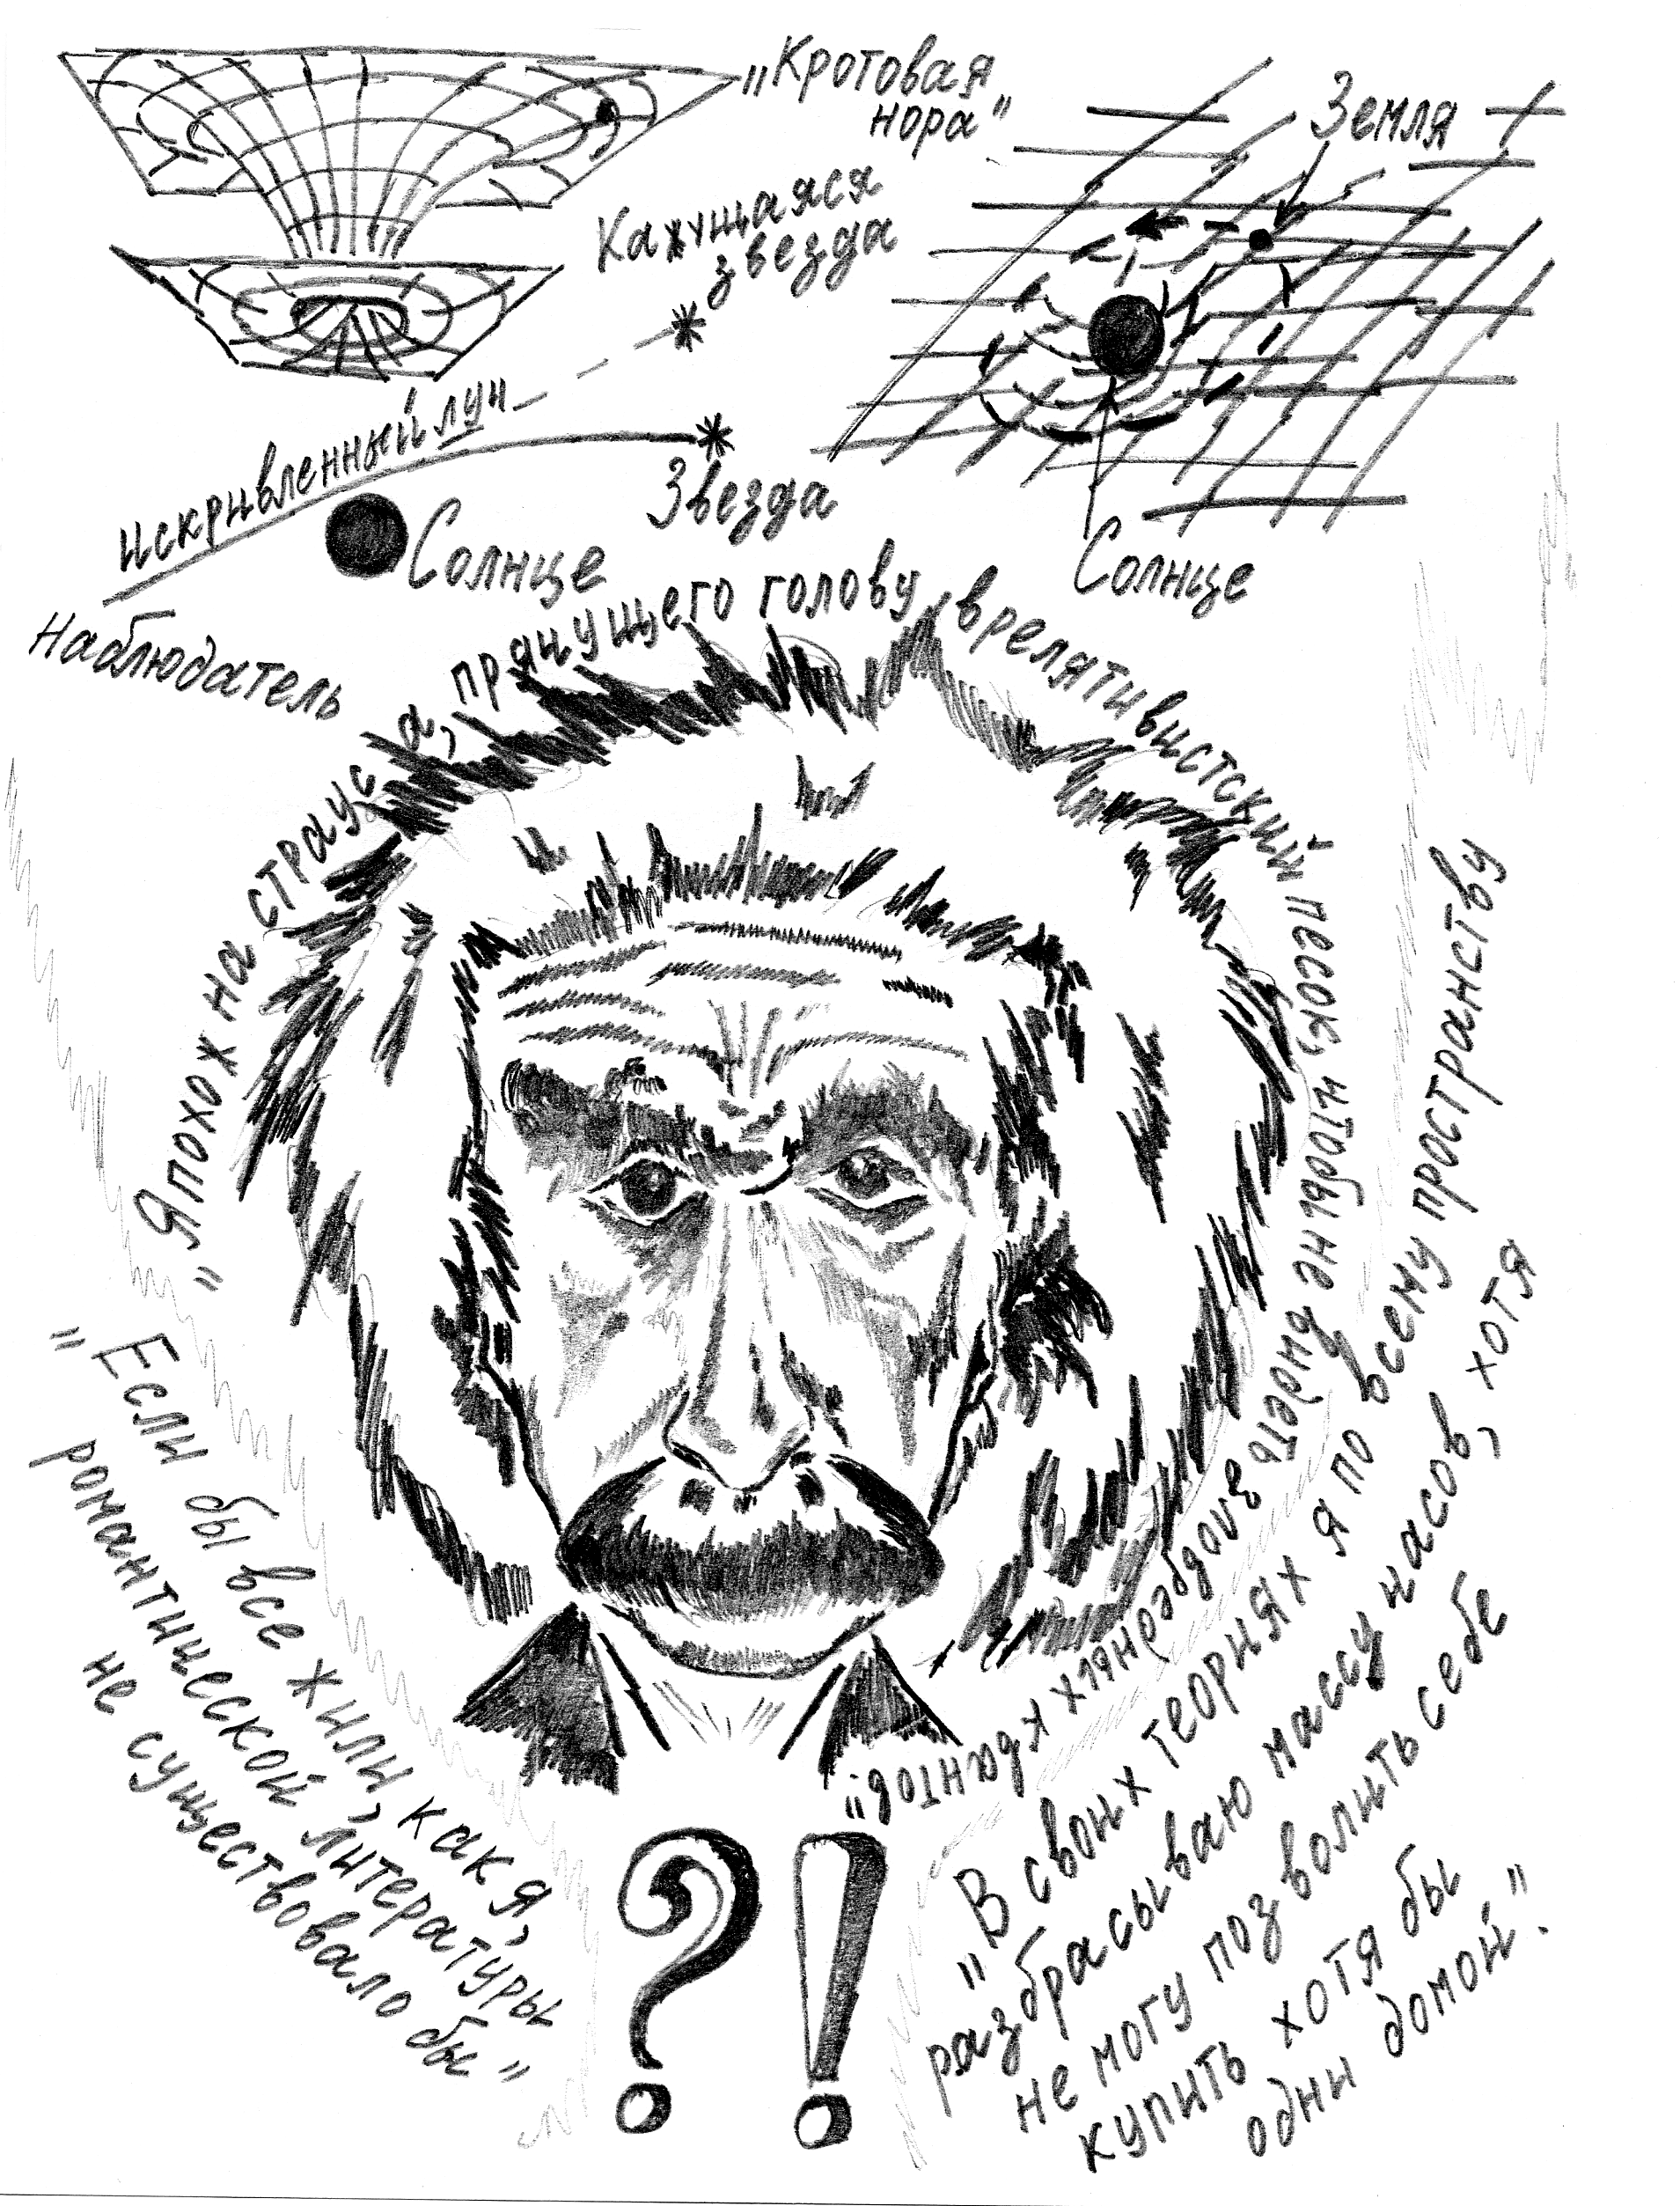 „Кротовая
нора"
Земля
Кажущаяся
звезда
Искривленный луч
Звезда
Солнце
Солнце
Наблюдатель
„Я похож на страуса, прячущего голову в релятивистский песок, чтобы не видеть зловредных квантов"
„Если бы все жили, как я,
романтической литературы
не существовало бы"
„В своих теориях я по всему пространству
разбрасываю массу часов, хотя
не могу позволить себе
купить хотя бы
одни домой".
?!